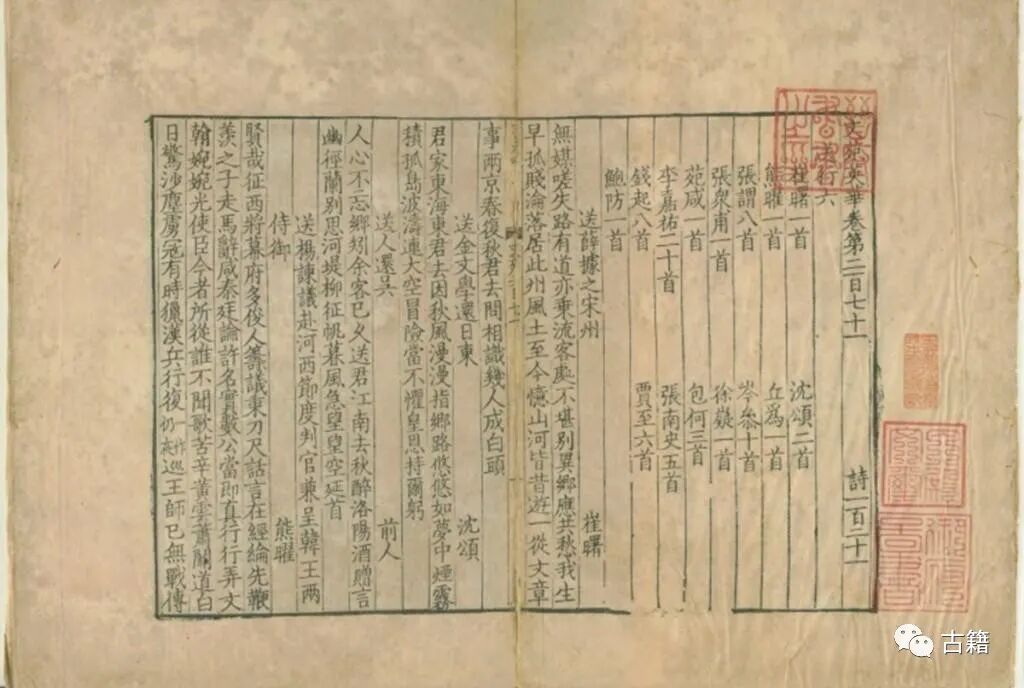 文苑英華卷第二百七十一 詩一百二十一
送行六
崔曙一首 沈頌二首
熊曜一首 丘為一首
張謂八首 岑參十首
張衆甫一首 徐嶷一首
苑咸一首 包何三首
李嘉祐二十首 張南史五首
錢起八首 賈至六首
鮑防一首
送薛據之宋州 崔曙
無媒嗟失路有道亦乗流客處不堪别異鄉應共愁我生
早孤賤淪落居此州風土至今憶山河皆昔遊一從文章
事兩京春復秋君去問相識幾人成白頭
送金文學還日東 沈頌
君家東海東君去因秋風漫漫指鄉路悠悠如夢中煙霧
積孤島波濤連大空冒險當不懼皇恩持爾躬
送人還吳 前人
人心不忘鄉矧余客已久送君江南去秋醉洛陽酒贈言
幽徑蘭别思河堤柳征帆暮風急望望空延首
送楊諫議赴河西節度判官兼呈韓王兩
侍御 熊曜
賢哉征西將幕府多俊人籌議秉刀尺話言在經綸先鞭
羨之子走馬辭咸秦廷論許名實數公當即真行行弄文
翰婉婉光使臣今者所從誰不聞歌苦辛黄雲蕭關道白
日驚沙塵虜冦有時獵漢兵行復巡王師已無戰傳
古籍